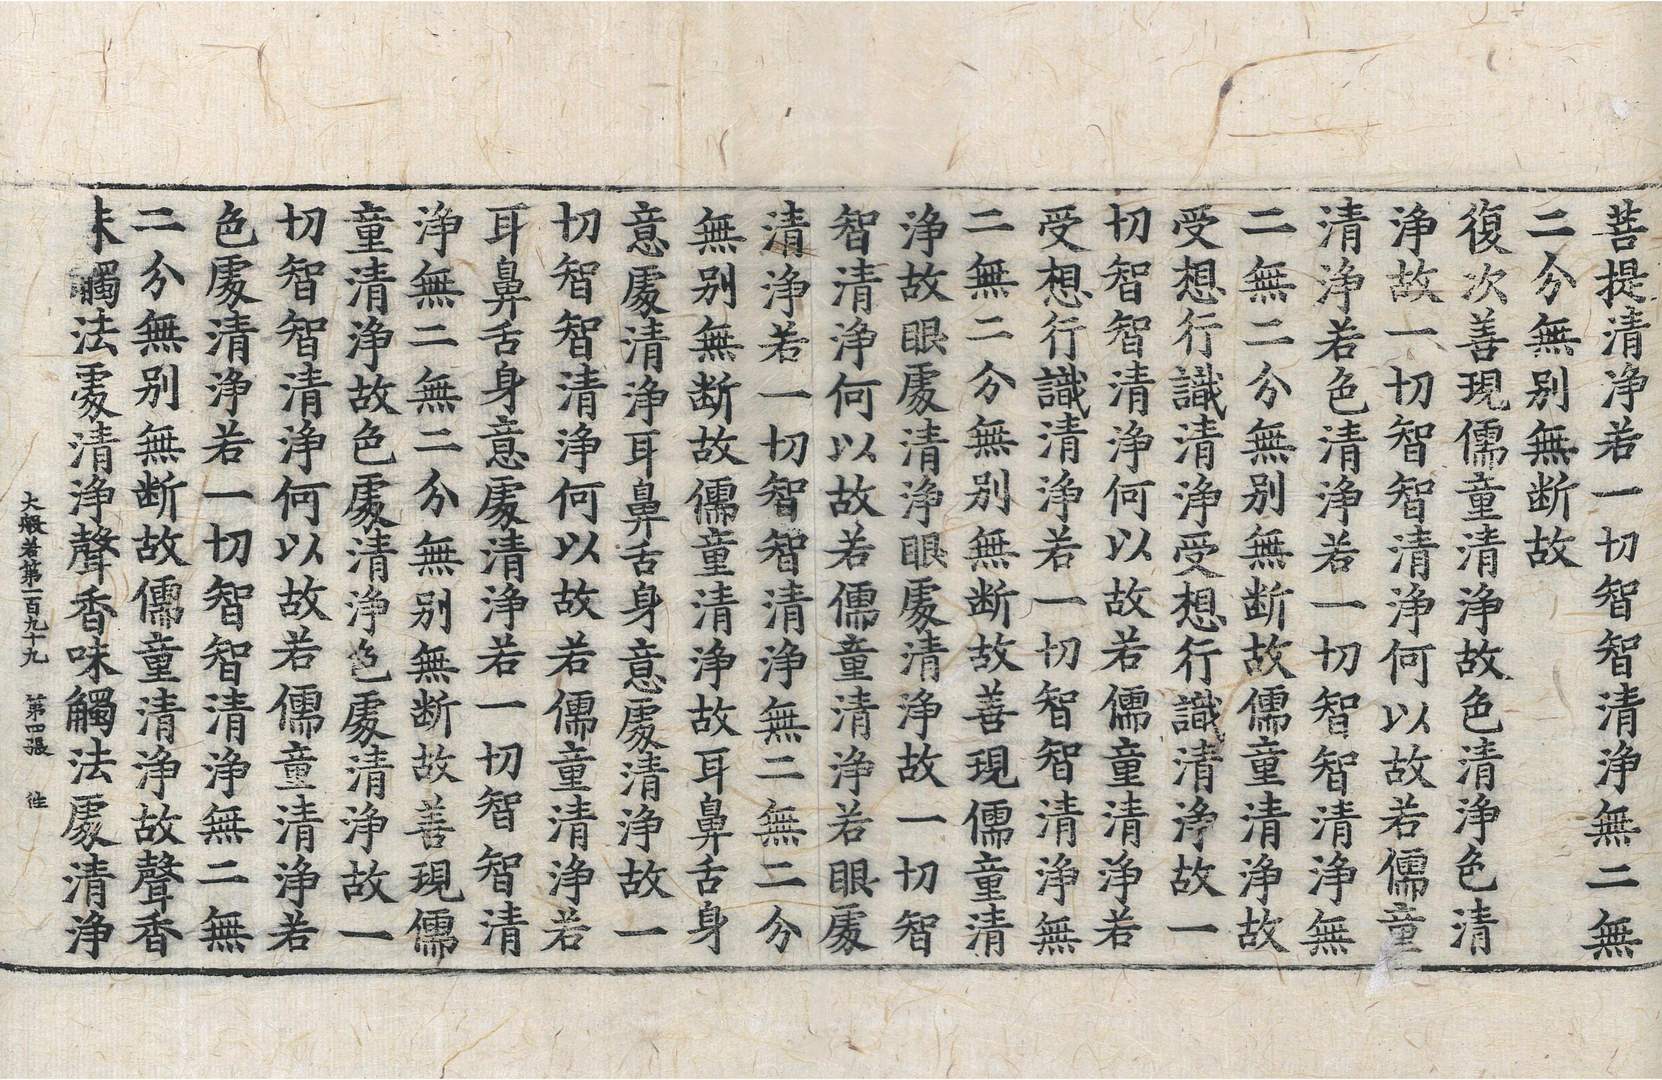 菩提清浄若一切智智清浄無二無
二分無别無断故
復次善現儒童清浄故色清浄色清
浄故一切智智清浄何以故若儒童
清浄若色清浄若一切智智清浄無
二無二分無别無断故儒童清浄故
受想行識清浄受想行識清浄故一
切智智清浄何以故若儒童清浄若
受想行識清浄若一切智智清浄無
二無二分無别無断故善現儒童清
浄故眼處清浄眼處清浄故一切智
智清浄何以故若儒童清浄若眼處
清浄若一切智智清浄無二無二分
無别無断故儒童清浄故耳鼻舌身
意處清浄耳鼻舌身意處清浄故一
切智智清浄何以故若儒童清浄若
耳鼻舌身意處清浄若一切智智清
浄無二無二分無别無断故善現儒
童清浄故色處清浄色處清浄故一
切智智清浄何以故若儒童清浄若
色處清浄若一切智智清浄無二無
二分無别無断故儒童清浄故聲香
味觸法處清浄聲香味觸法處清浄
大般若第一百九十九 第四張 往